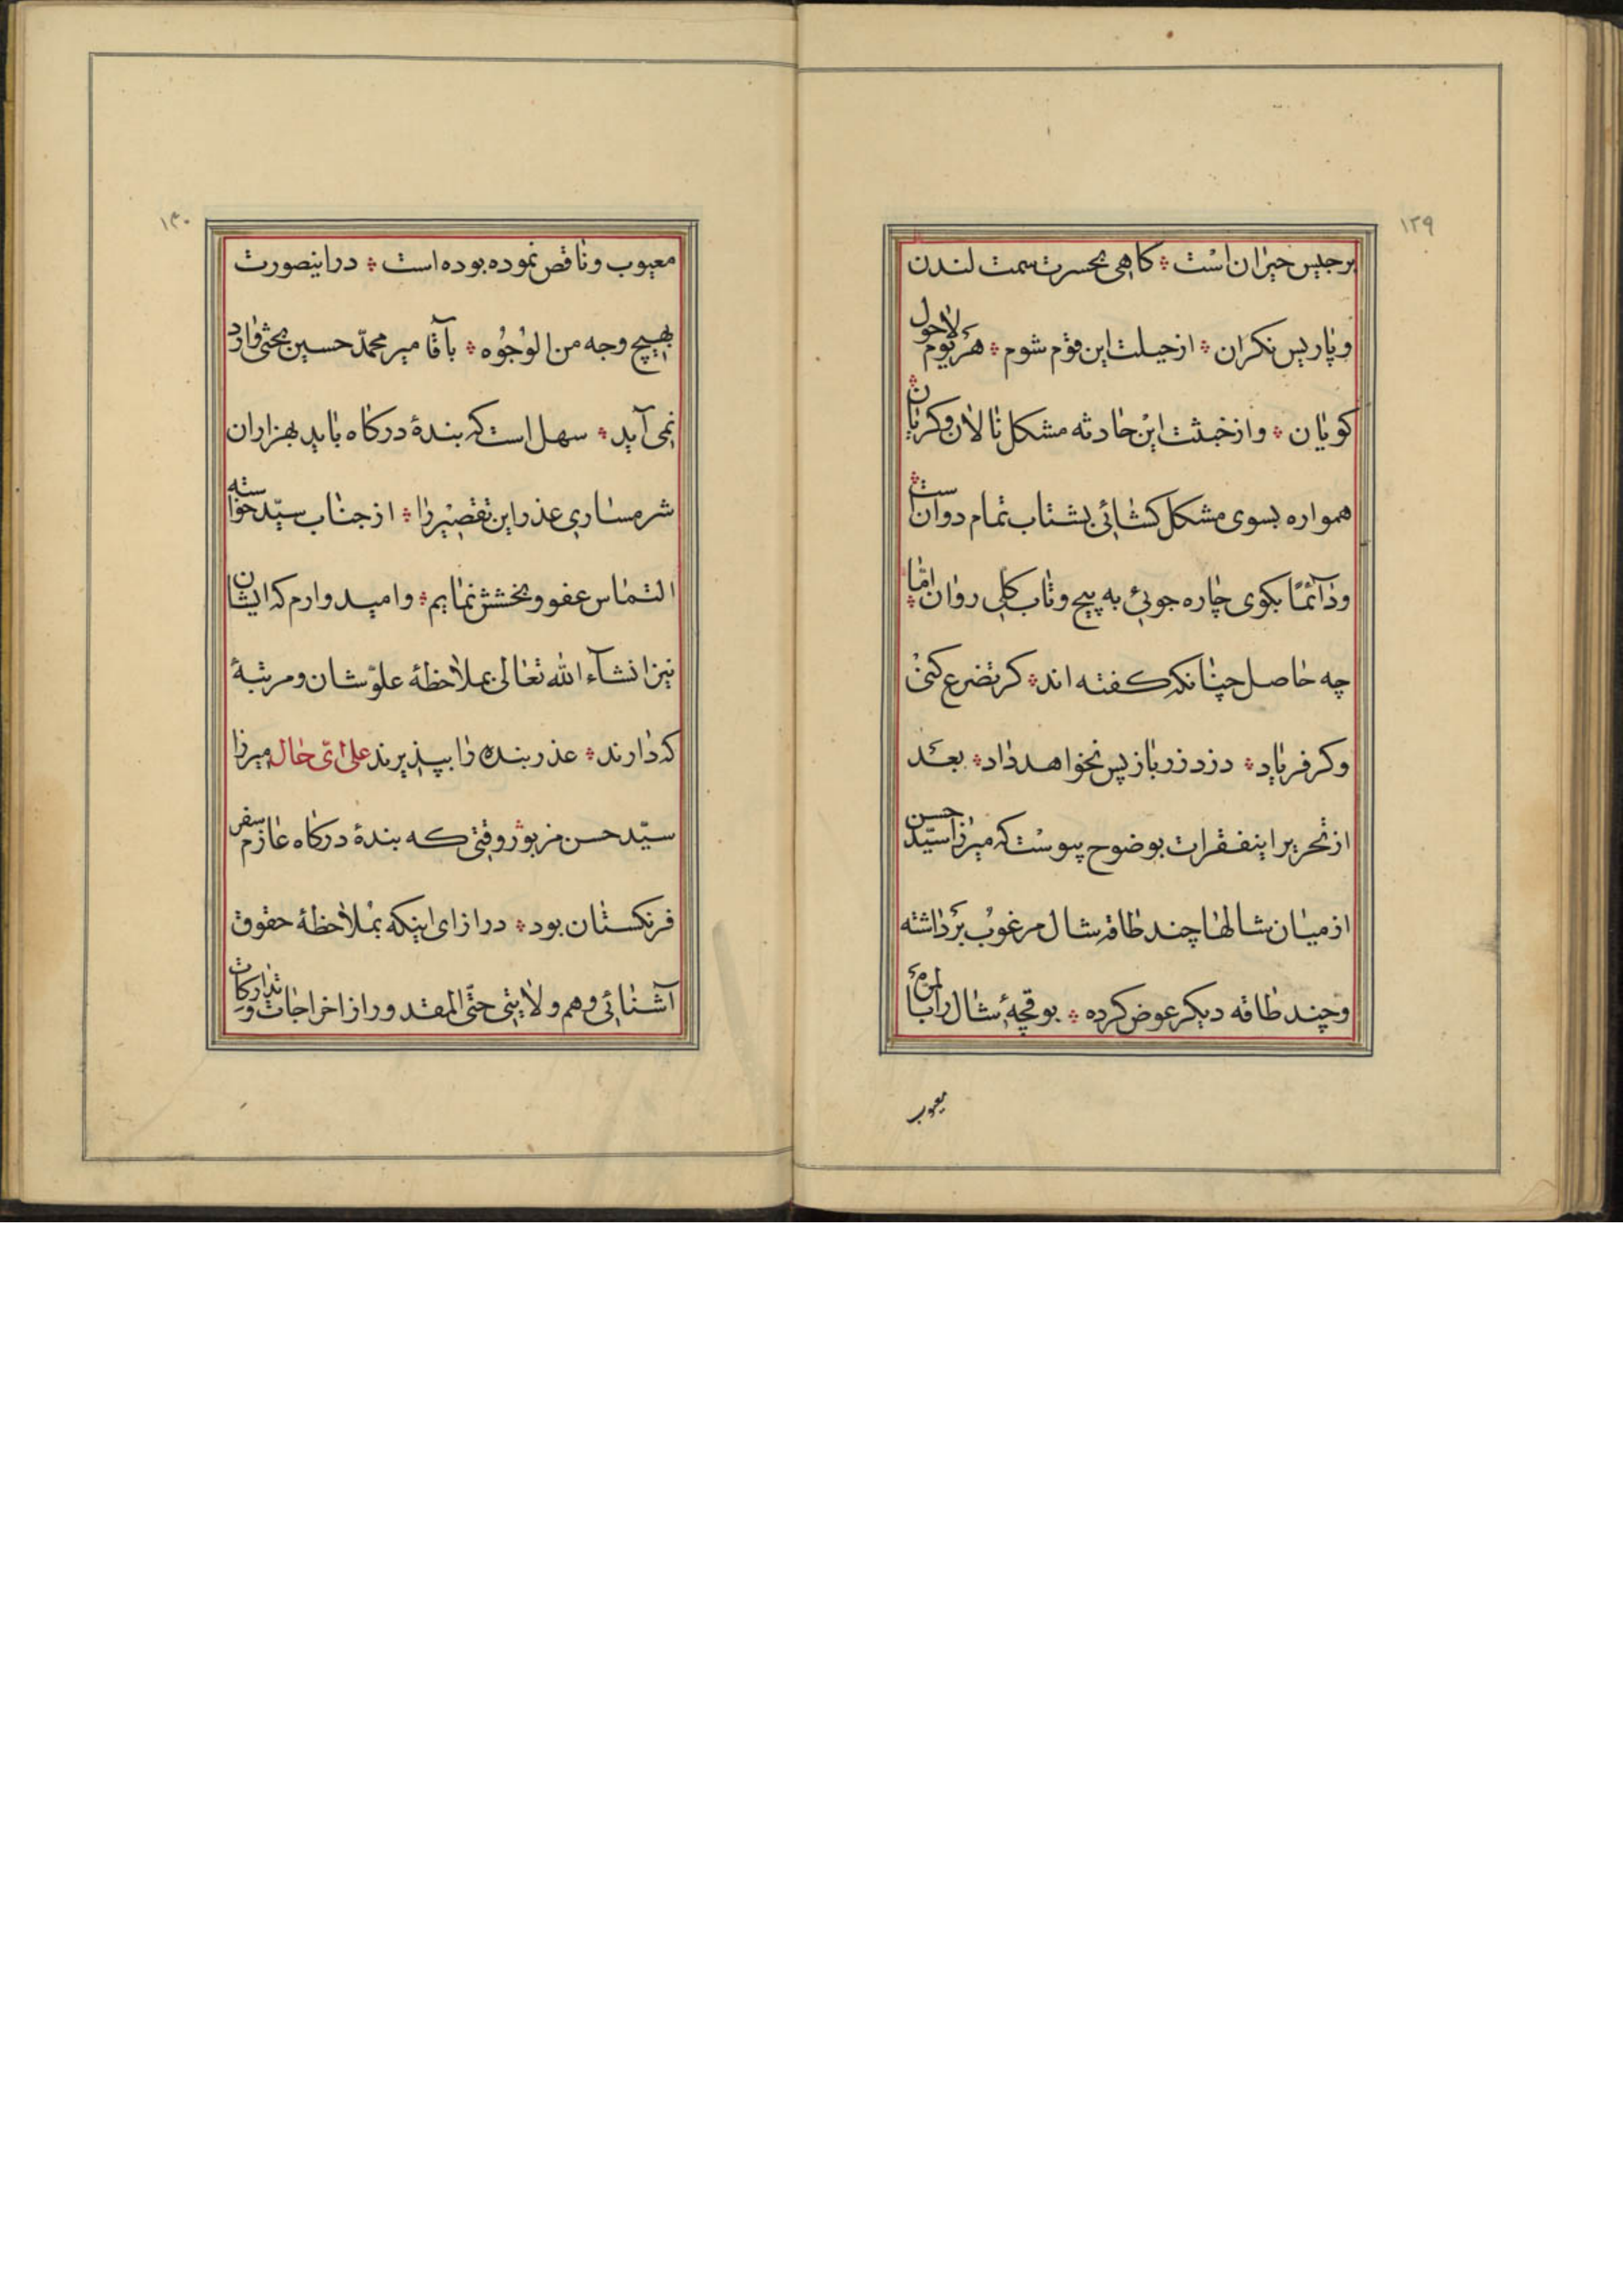 ۱۳۹
برجیس حیران است ❖ کاهی بحسرت سمت لندن
و پاریس نکران ❖ از حیلت این قوم شوم ❖ هر یوم لاحول
کویان ❖ و از خبثت این حادثه مشکل نالان و کریان ❖
همواره بسوی مشکل کشائی بشتاب تمام دوانست ❖
و دآئمًا بکوی چاره جوئی به پیچ و تاب کلی روان امّا ❖
چه حاصل چنانکه کفته اند ❖ کر تضرع کنی
و کر فریاد ❖ دزد زر باز پس نخواهد داد ❖ بعد
از تحریر اینفقرات بوضوح پیوست که میرزا سیّد حسن
از میان شالها چند طاقه شال مرغوب برداشته
و چند طاقه دیکر عوض کرده ❖ بوقچهٔ شال را بالمرّه
معیوب
۱۴۰
معیوب و ناقص نموده بوده است ❖ در اینصورت
بهیچ وجه من الوجوه ❖ بآقا میر محمّد حسین بحثی وارد
نمی آید ❖ سهل است که بندهٔ درکاه باید بهزاران
شرمساری عذر این تقصیر را ❖ از جناب سیّد خواسته
التماس عفو و بخشش نمایم ❖ و امیدوارم که ایشان
نیز انشآء الله تعالی بملاحظهٔ علوّ شان و مرتبهٔ
که دارند ❖ عذر بنده را بپذیرند علی ایّ حال میرزا
سیّد حسن مزبور وقتی که بندهٔ درکاه عازم سفر
فرنکستان بود ❖ در ازای اینکه بملاحظهٔ حقوق
آشنائی و هم ولایتی حتّی المقدور از اخراجات و تدارکات